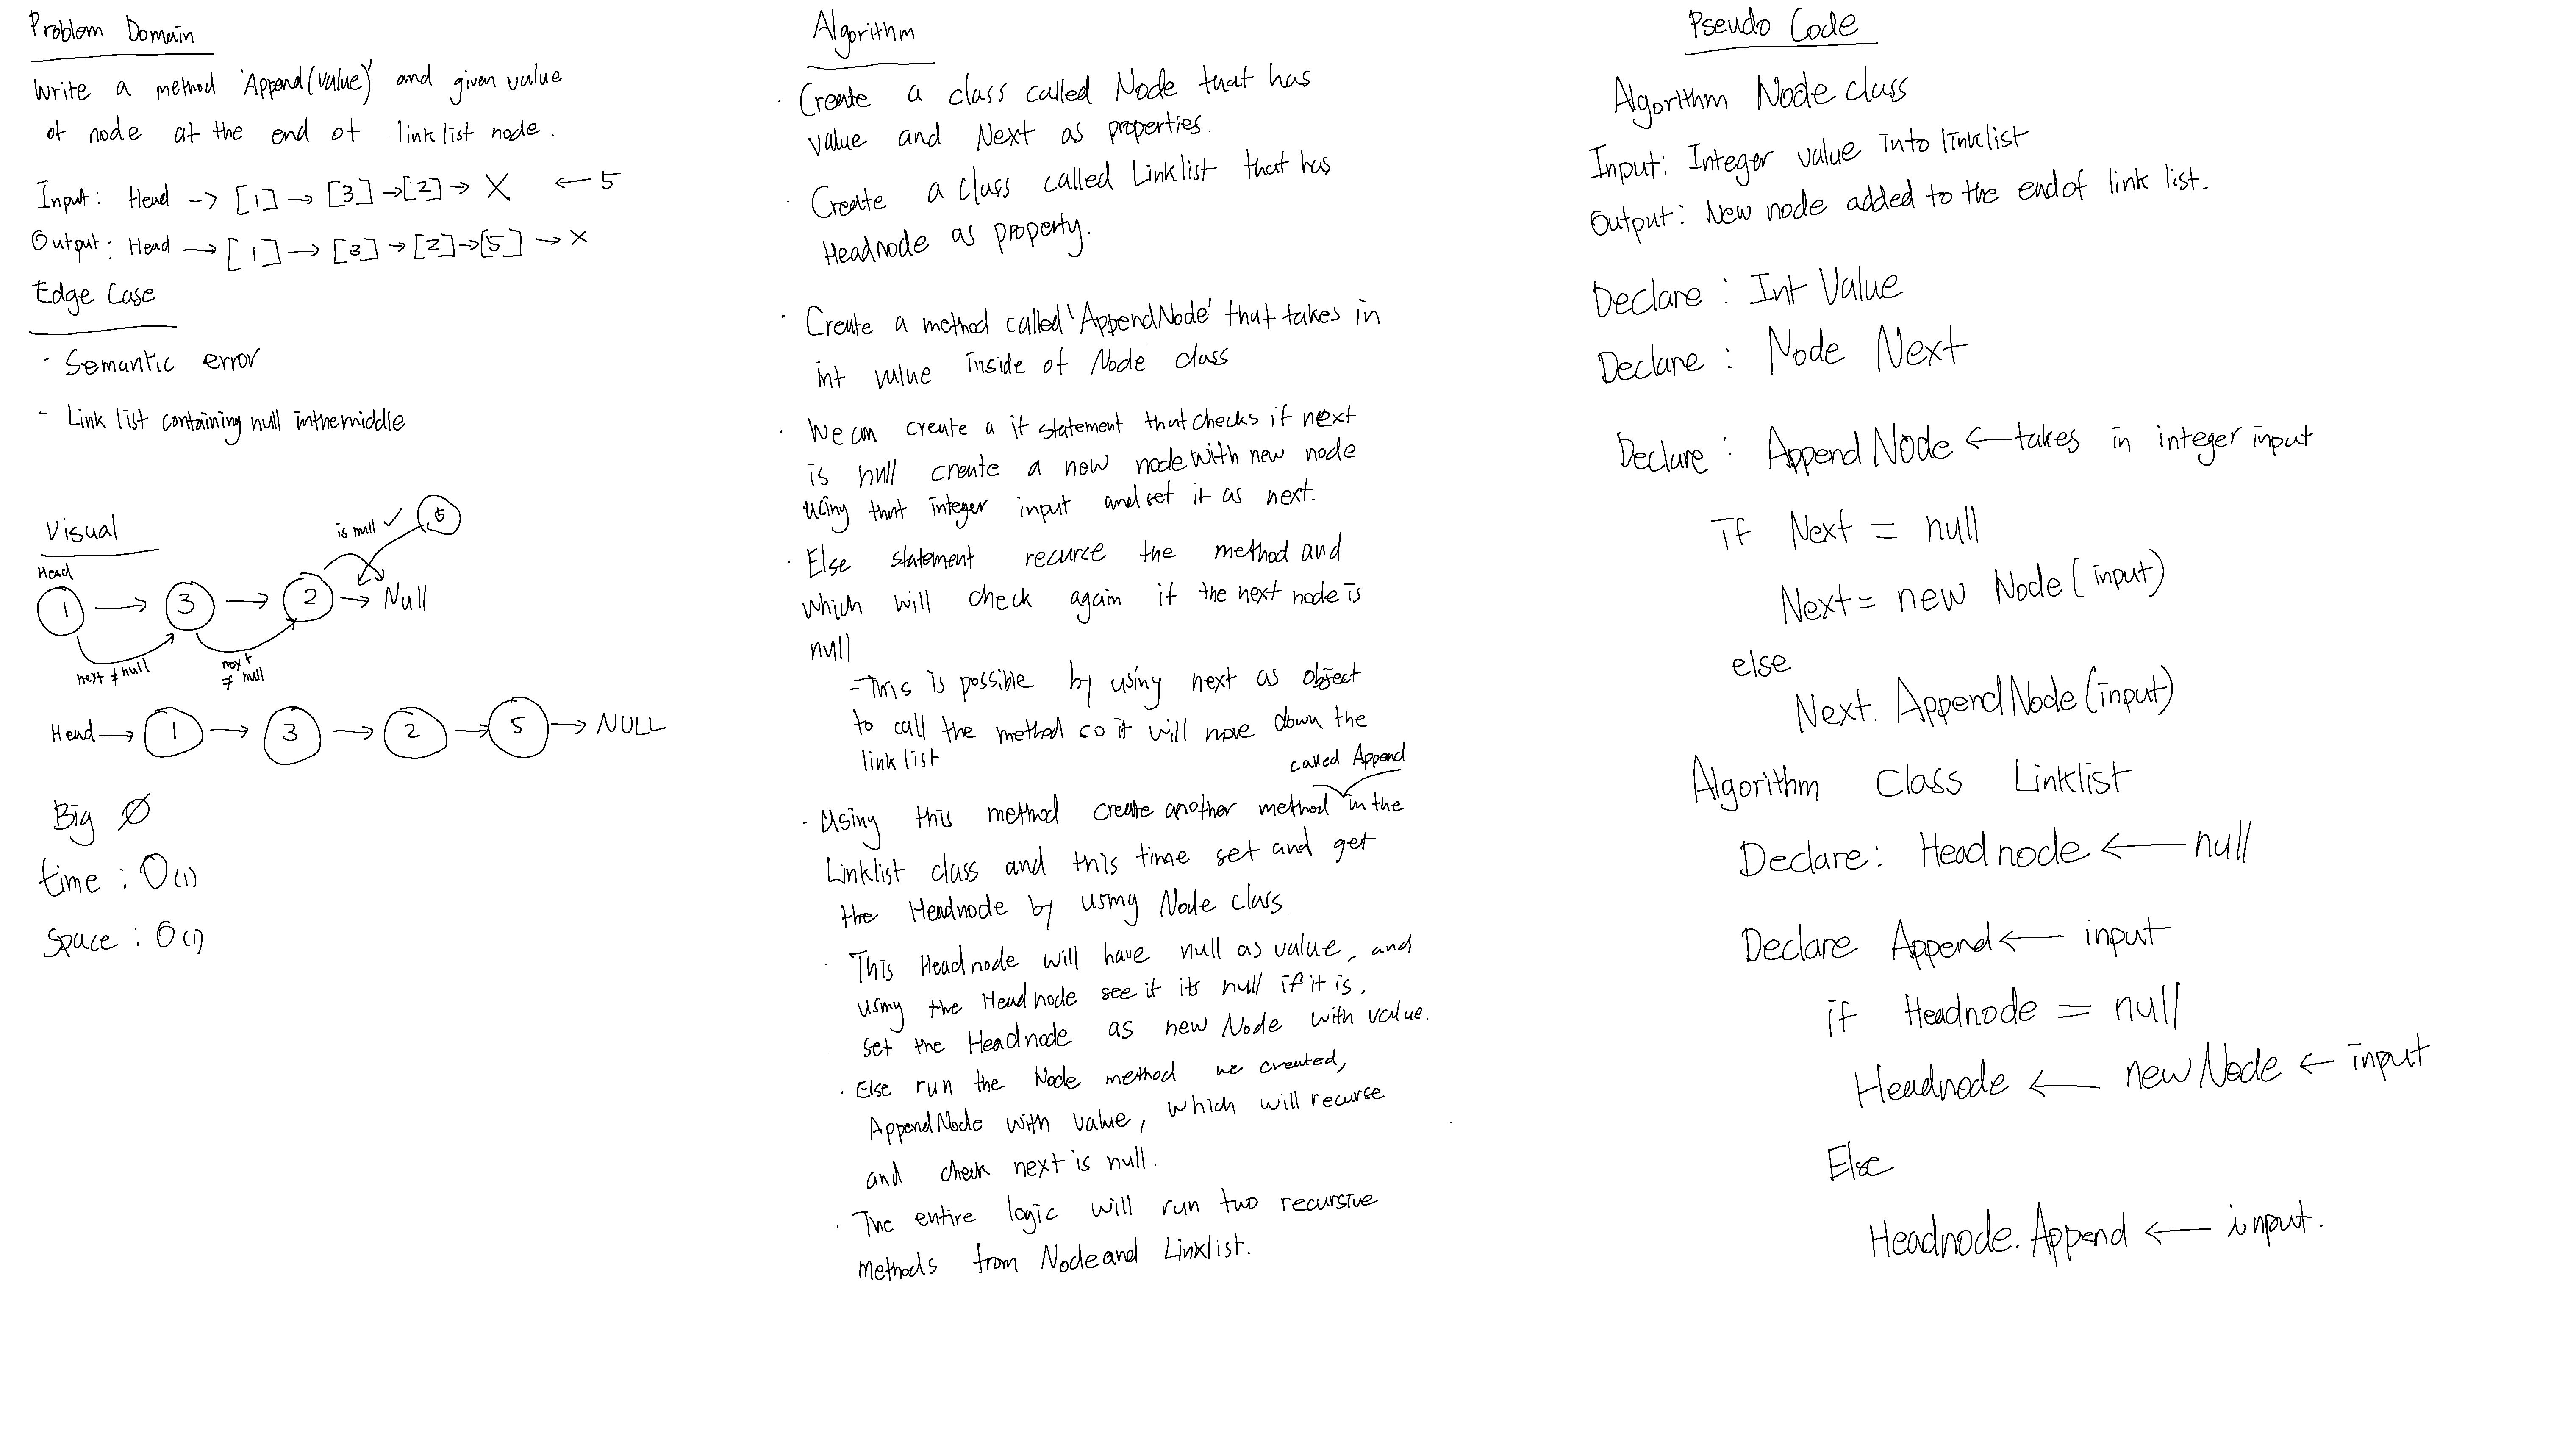 Problem Domain
Write a method 'Append(value)' and given value
of node at the end of link list node.
Input: Head -> [1] → [3] → [2] → X ← 5
Output: Head → [1] → [3] → [2] → [5] → X
Edge Case
- Semantic error
- Link list containing null in the middle
Visual
is null ✓ 5
Head
1 → 3 → 2 → Null
next ≠ null
next
≠ null
Head → 1 → 3 → 2 → 5 → NULL
Big O
time : O(1)
Space : O(1)
Algorithm
· Create a class called Node that has
value and Next as properties.
· Create a class called Linklist that has
Headnode as property.
· Create a method called 'AppendNode' that takes in
int value inside of Node class
· We can create a if statement that checks if next
is null create a new node with new node
using that integer input and set it as next.
· Else statement recurse the method and
which will check again if the next node is
null
- This is possible by using next as object
to call the method so it will move down the
link list
called Append
· Using this method create another method in the
Linklist class and this time set and get
the Headnode by using Node class.
· This Headnode will have null as value, and
using the Headnode see if its null if it is,
set the Headnode as new Node with value.
· Else run the Node method we created,
AppendNode with value, which will recurse
and check next is null.
· The entire logic will run two recursive
methods from Node and Linklist.
Pseudo Code
Algorithm Node class
Input: Integer value into linklist
Output: New node added to the end of link list.
Declare : Int Value
Declare : Node Next
Declare : AppendNode ← takes in integer input
if Next = null
Next = new Node(input)
else
Next. AppendNode(input)
Algorithm Class Linklist
Declare: Headnode ← null
Declare Append ← input
if Headnode = null
Headnode ← new Node ← input
Else
Headnode. Append ← input.